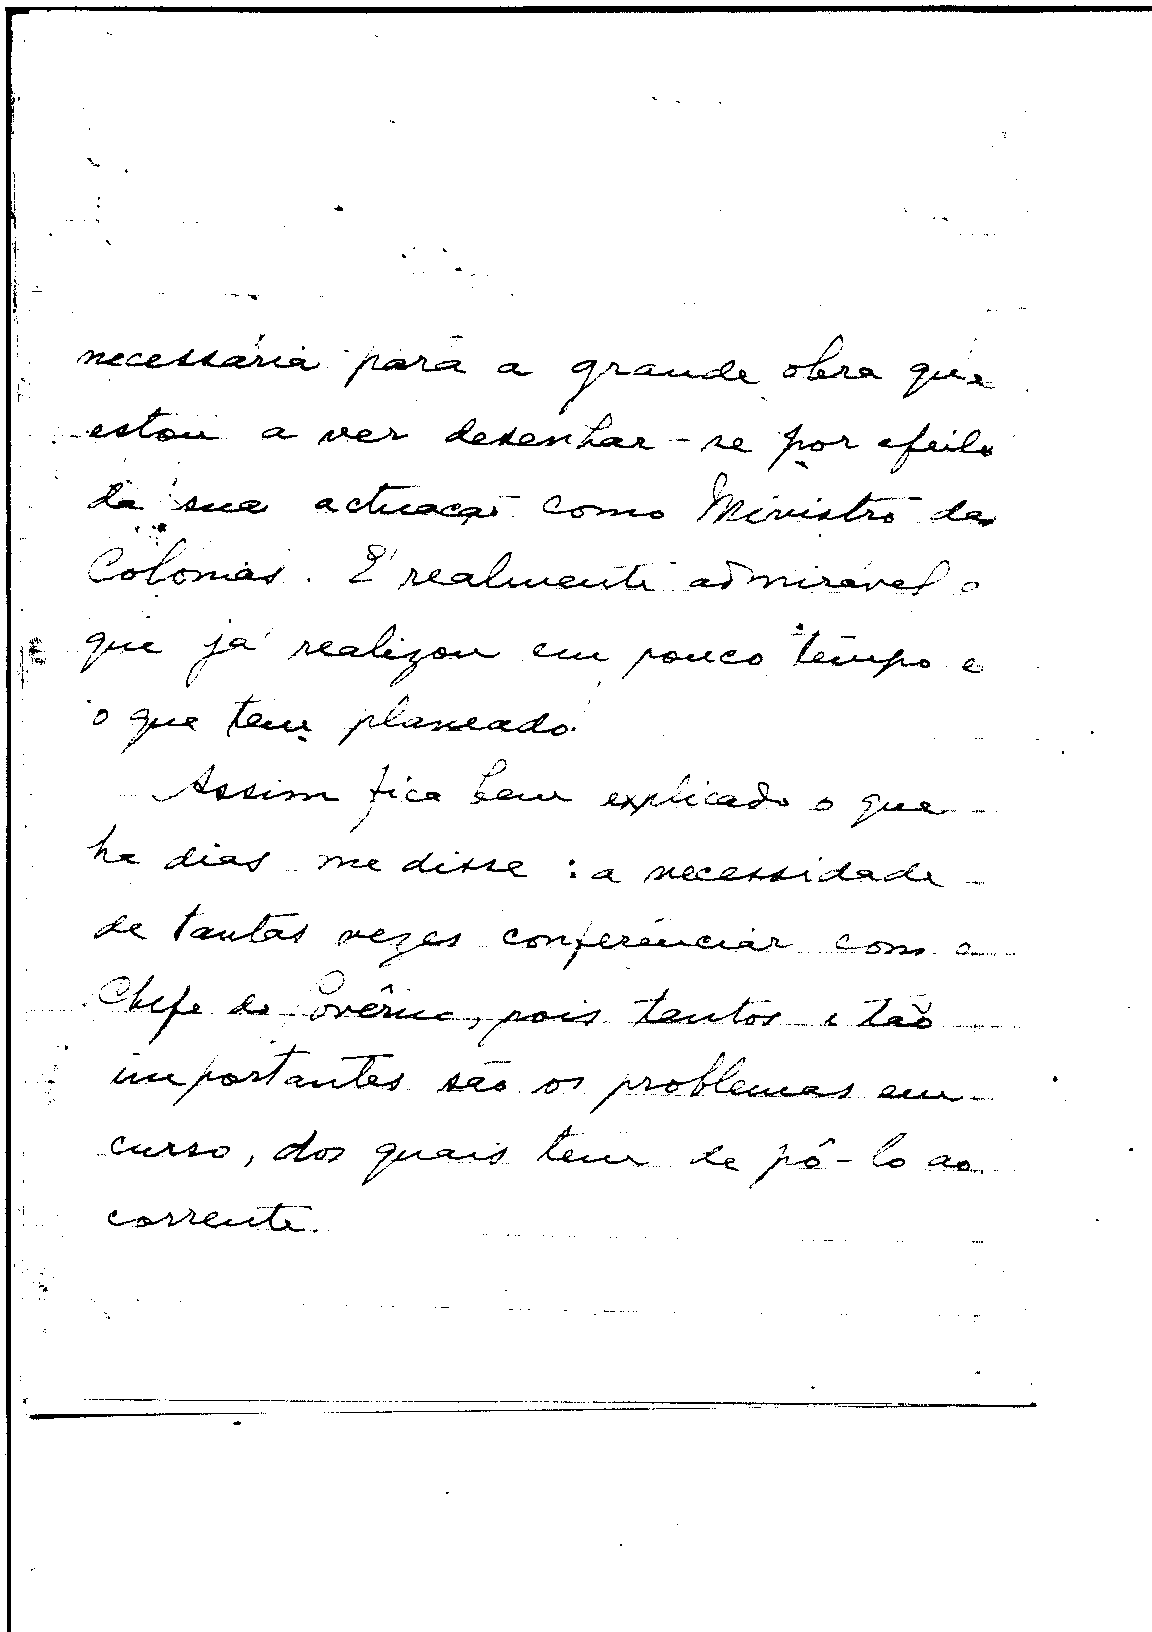 necessária para a grande obra que
estou a ver desenhar-se por efeito
da sua actuação como Ministro das
Colonias. É realmente admirável o
que já realizou em pouco tempo e
o que tem planeado.
Assim fica bem explicado o que
ha dias me disse: a necessidade
de tantas vezes conferênciar com o
Chefe do Govêrno, pois tantos e tão
importantes são os problemas em
curso, dos quais tem de pô-lo ao
corrente.